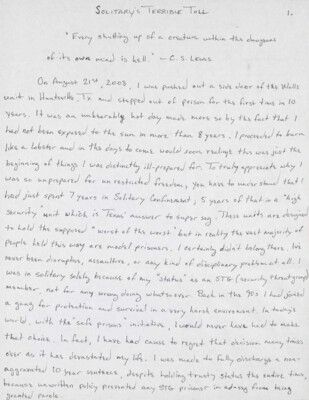 Solitary's Terrible Toll 1.
"Every shutting up of a creature within the dungeon
of its own mind is hell." - C. S Lewis
On August 21st, 2003, I was pushed out a side door of the Walls
unit in Huntsville, Tx and stepped out of prison for the first time in 10
years. It was an unbearably hot day made more so by the fact that I
had not been exposed to the sun in more than 8 years. I proceeded to burn
like a lobster and in the days to come would soon realize this was just the
beginning of things I was distinctly ill-prepared for. To truly appreciate why I
was so unprepared for unrestricted freedom, you have to understand that I
had just spent 7 years in Solitary Confinement; 5 years of that in a "high
security" unit which is Texas' answer to super max. These units are designed
to hold the supposed "worst of the worst" but in reality the vast majority of
people held this way are model prisoners. I certainly didn't belong there. I've
never been disruptive, assaultive, or any kind of disciplinary problem at all. I
was in solitary solely because of my "status" as an STG (security threat group)
member not for any wrong doing whatsoever. Back in the 90's I had joined
a gang for protection and survival in a very harsh environment. In today's
world, with the "safe prisons" initiative, I would never have had to make
that choice. In fact, I have had cause to regret that decision many times
over as it has devastated my life. I was made to fully discharge a non-
aggravated 10 year sentence, despite holding trusty status the entire time,
because unwritten policy prevented any STG prisoner in ad-seg from being
granted parole.